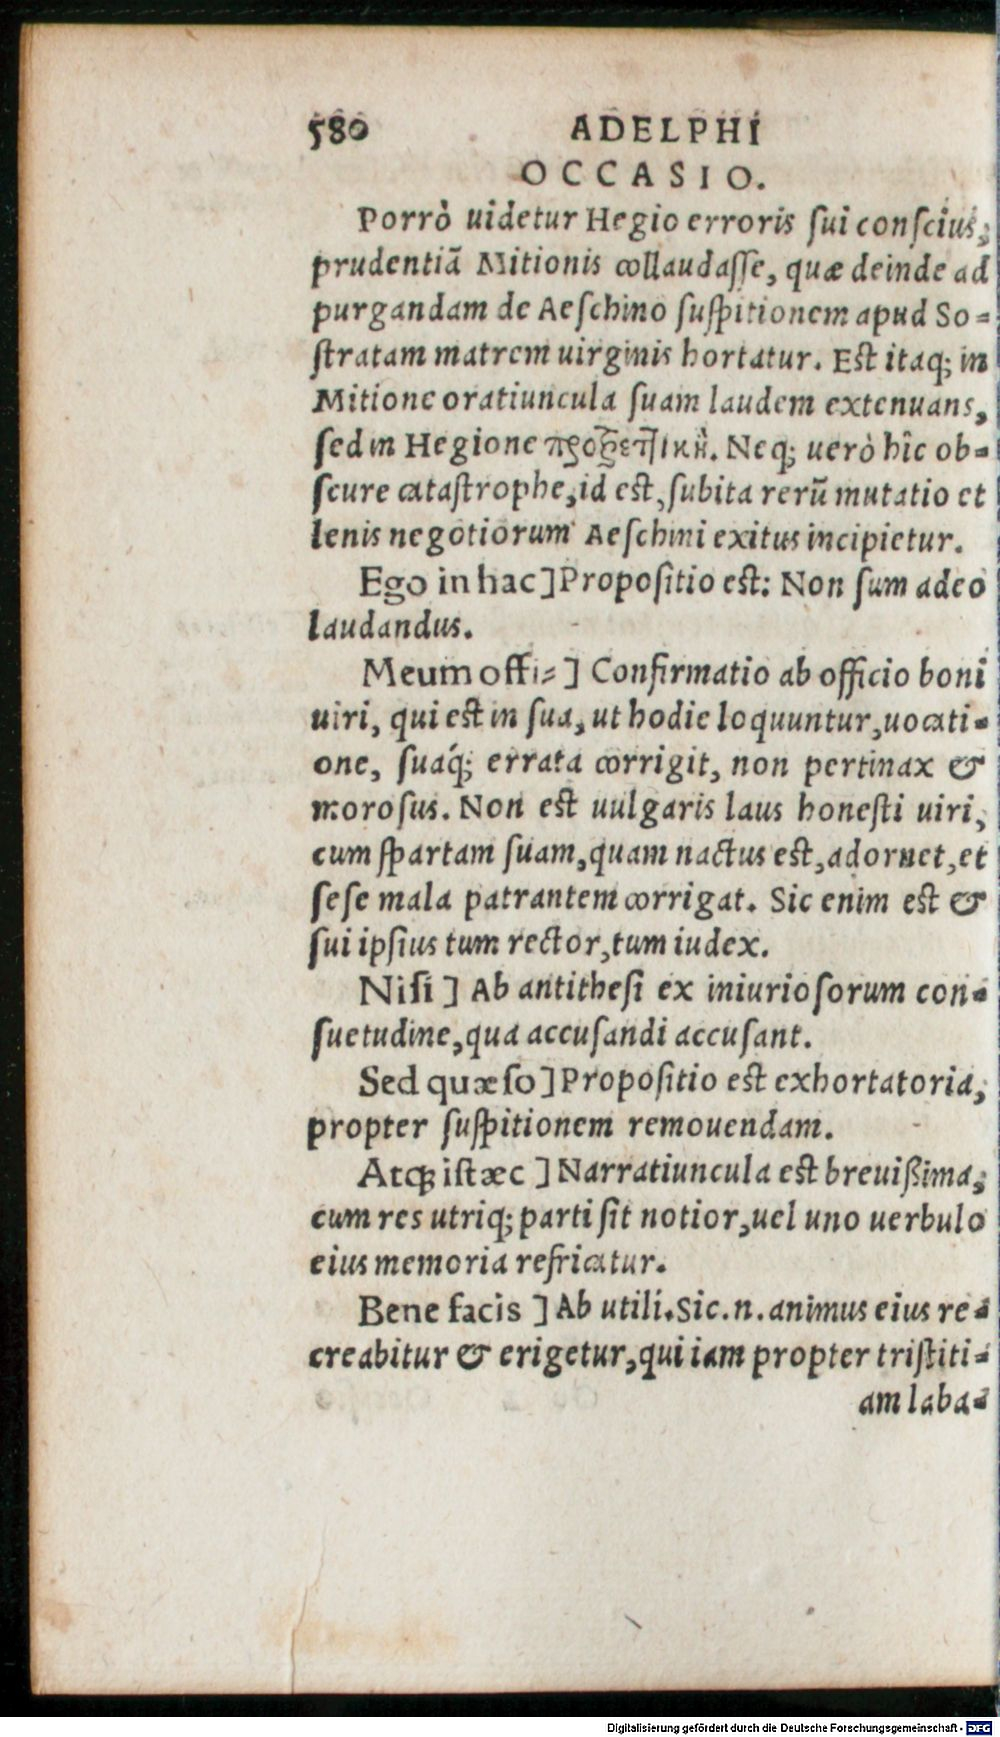 580 ADELPHI
OCCASIO.
Porrò uidetur Hegio erroris ſui conſcius,
prudentiã Mitionis collaudaſſe, quæ deinde ad
purgandam de Aeſchino ſuſpitionem apud So-
ſtratam matrem uirginis hortatur. Eſt itaq; in
Mitione oratiuncula ſuam laudem extenuans,
ſed in Hegione προτρεπτικὴ. Neq; uerò hîc ob-
ſcure cataſtrophe, id eſt, ſubita rerũ mutatio et
lenis negotiorum Aeſchini exitus incipietur.
Ego in hac] Propoſitio eſt: Non ſum adeo
laudandus.
Meum offi-] Confirmatio ab officio boni
uiri, qui eſt in ſua, ut hodie loquuntur, uocati-
one, ſuaq́; errata corrigit, non pertinax &
moroſus. Non eſt uulgaris laus honeſti uiri,
cum ſpartam ſuam, quam nactus eſt, adornet, et
ſeſe mala patrantem corrigat. Sic enim eſt &
ſui ipſius tum rector, tum iudex.
Niſi] Ab antitheſi ex iniurioſorum con-
ſuetudine, qua accuſandi accuſant.
Sed quæſo] Propoſitio eſt exhortatoria,
propter ſuſpitionem remouendam.
Atq; iſtæc] Narratiuncula eſt breuißima,
cum res utriq; parti ſit notior, uel uno uerbulo
eius memoria refricatur.
Bene facis] Ab utili. Sic.n. animus eius re-
creabitur & erigetur, qui iam propter triſtiti-
am laba-
Digitalisierung gefördert durch die Deutsche Forschungsgemeinschaft - DFG